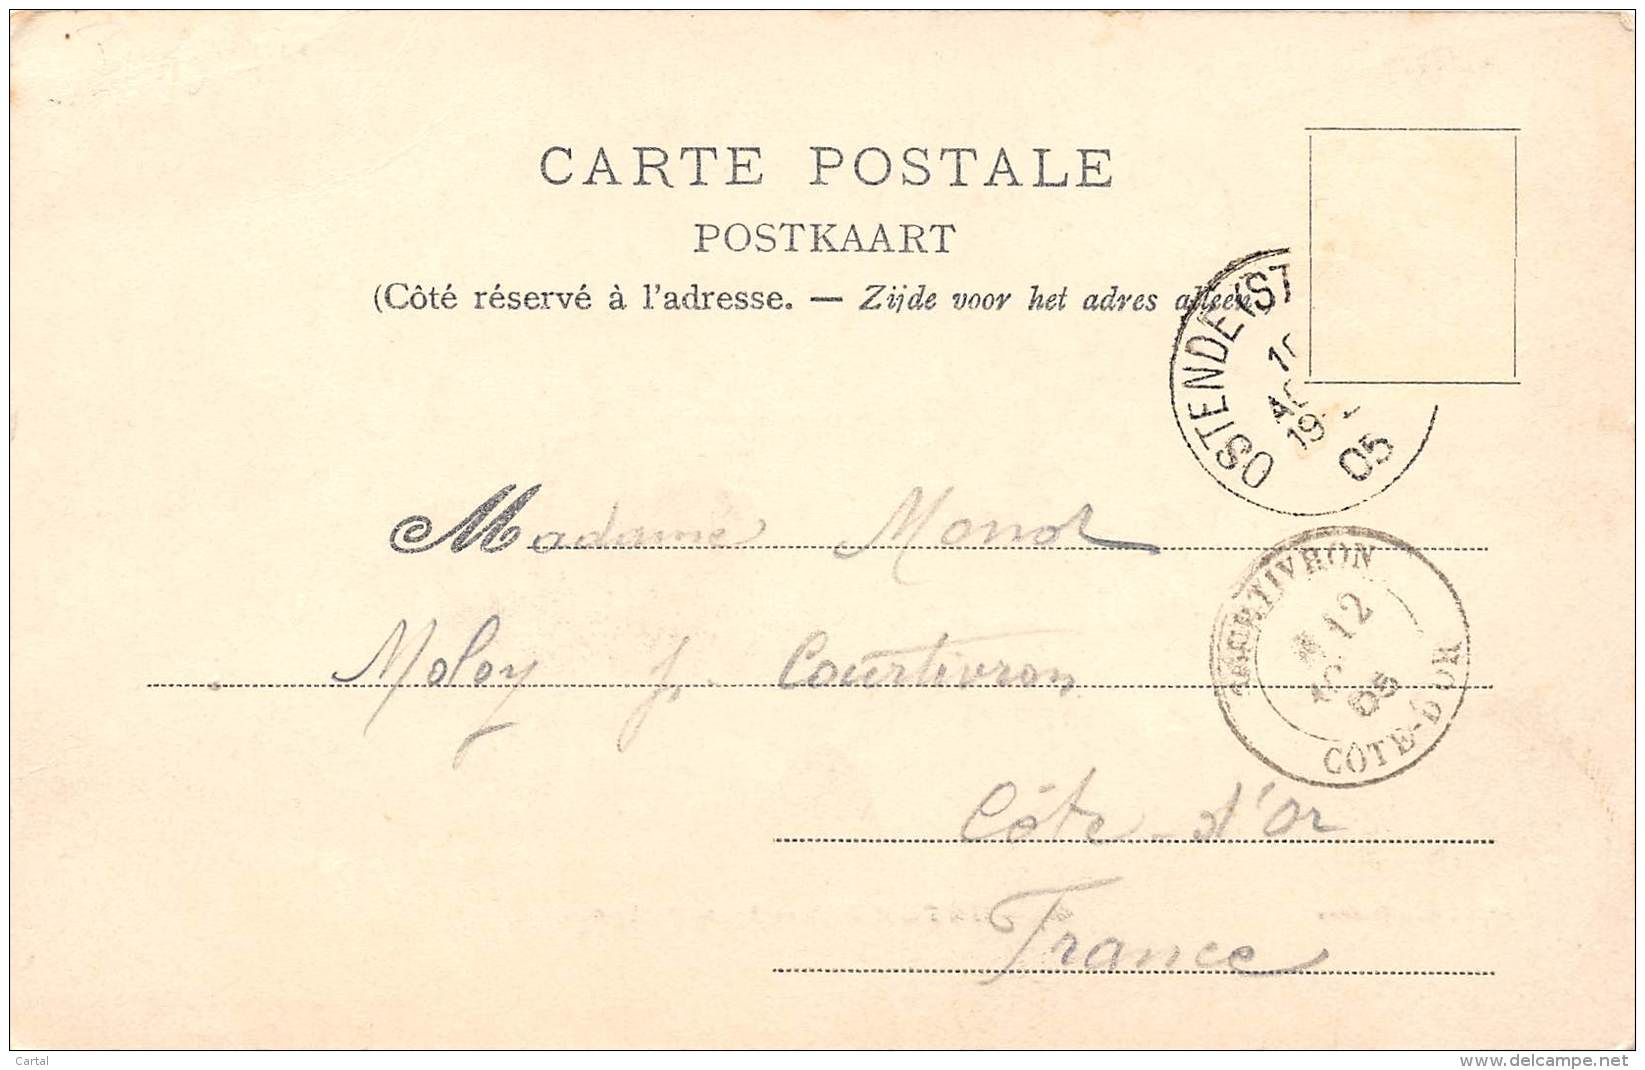 CARTE POSTALE
POSTKAART
(Côté réservé à l'adresse. — Zijde voor het adres alleen
OSTENDE (ST
19
05
Madame Monot
Moloy p. Courtivron
Côte-d'Or
France
COURTIVRON
12
05
CÔTE-D'OR
Cartal
www.delcampe.net